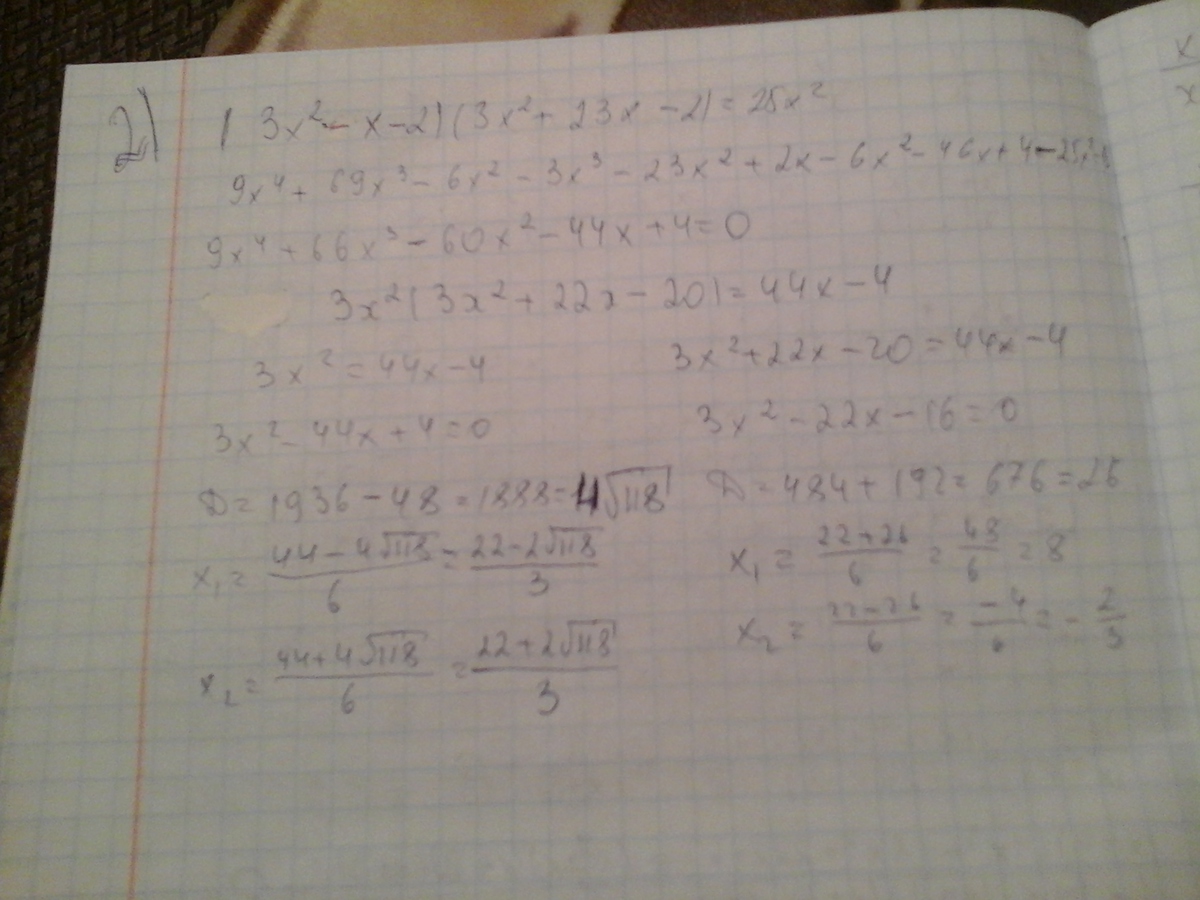 2) (3x² - x - 2)(3x² + 23x - 2) = 25x²
9x⁴ + 69x³ - 6x² - 3x³ - 23x² + 2x - 6x² - 46x + 4 - 25x²
9x⁴ + 66x³ - 60x² - 44x + 4 = 0
3x²(3x² + 22x - 20) = 44x - 4
3x² = 44x - 4
3x² - 44x + 4 = 0
D = 1936 - 48 = 1888 = 4√118
x₁ = (44 - 4√118)/6 = (22 - 2√118)/3
x₂ = (44 + 4√118)/6 = (22 + 2√118)/3
3x² + 22x - 20 = 44x - 4
3x² - 22x - 16 = 0
D = 484 + 192 = 676 = 26
x₁ = (22 + 26)/6 = 48/6 = 8
x₂ = (22 - 26)/6 = -4/6 = -2/3
x
x